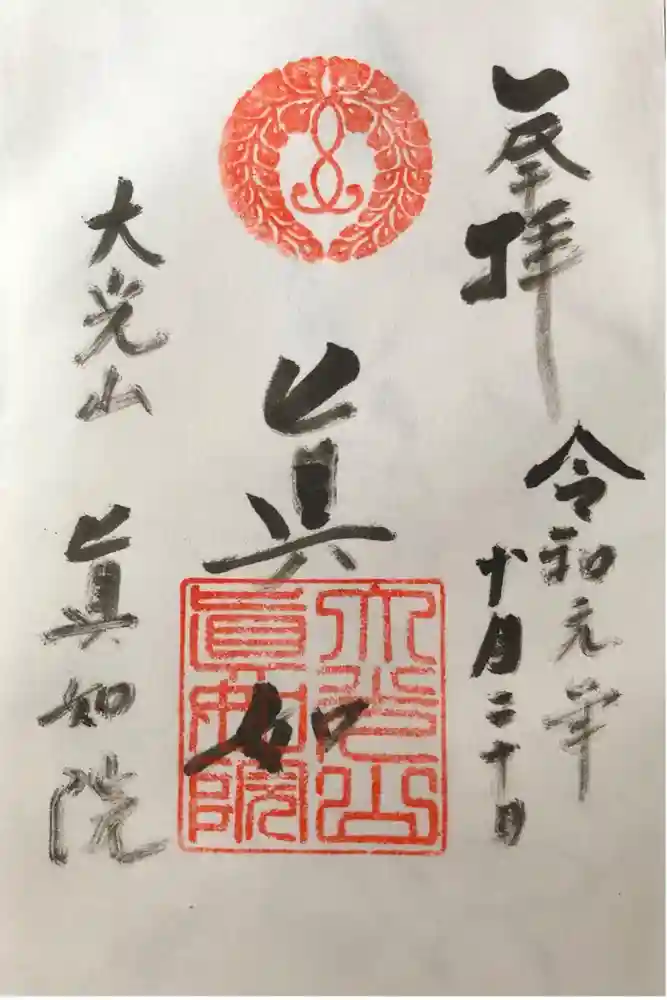 拝
令和元年
十月二十日
眞如
大光山
眞如院
大光山 眞如院